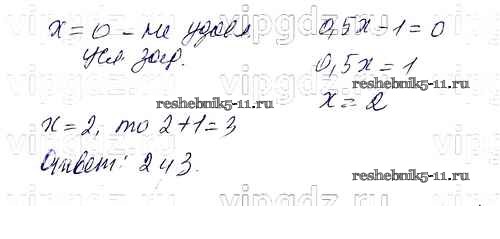 x = 0 - не удовл.
усл. зад.
0,5x - 1 = 0
0,5x = 1
x = 2
x = 2, то 2 + 1 = 3
Ответ: 2 и 3.
vipgdz.ru
reshebnik5-11.ru
reshebnik5-11.ru
reshebnik5-11.ru